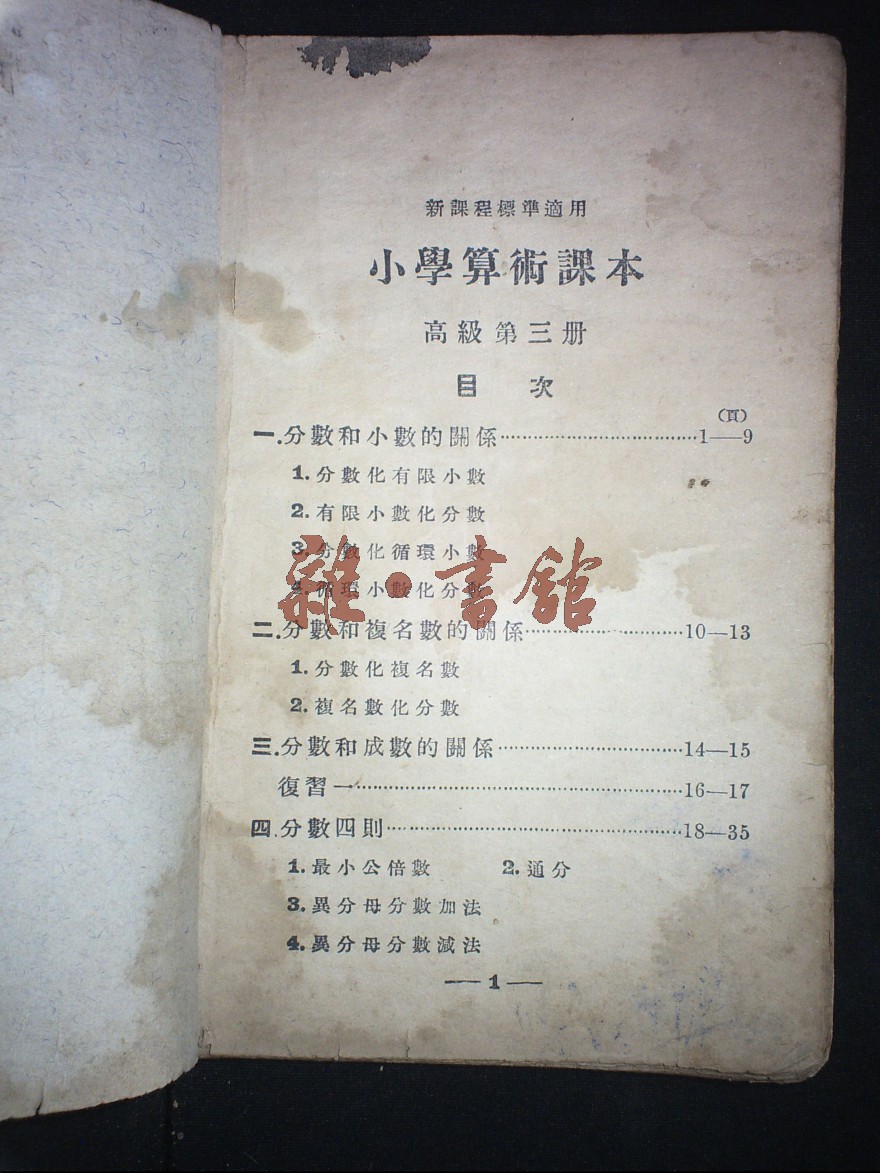 新課程標準適用
小學算術課本
高級第三册
目次
(頁)
一.分數和小數的關係………………………………1—9
1.分數化有限小數
2.有限小數化分數
3.分數化循環小數
4.循環小數化分數
雜·書館
二.分數和複名數的關係………………………10—13
1.分數化複名數
2.複名數化分數
三.分數和成數的關係……………………………14—15
復習一……………………………………………………16—17
四.分數四則………………………………………………18—35
1.最小公倍數 2.通分
3.異分母分數加法
4.異分母分數減法
—1—